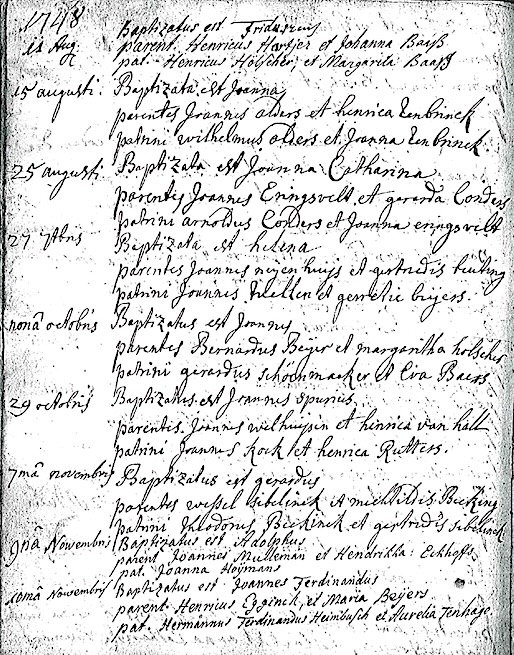 1748
11 Aug. Baptizatus est Fridericus
parent. Henricus Hortjes et Johanna Baaß
pat. Henricus Hölscher, et Margarita Baaß
15 augusti. Baptizata est Joanna
parentes Joannes alders et henrica tenbrinck
patrini wilhelmus alders et Joanna tenbrinck
25 augusti Baptizata est Joanna Catharina
parentes Joannes Eningsvelt et gerarda Conders
patrini arnoldus Conders et Joanna eningsvelt
27 7tbris Baptizata est helena
parentes Joannes neyenhuijs et gertrudis
patrini Joannis Wellen et gerretie beijers.
nonâ octobris Baptizatus est Joannes
parentes Bernardus Beijer et margaritha holscher
patrini gerardus schoenmaeker et Eva Baers
29 octobris Baptizatus est Joannes spurius.
parentis Joannes welhuysen et hinrica van hall
patrini Joannes Kock et henrica Rutters.
7mâ novembris Baptizatus est gerardus
parentes wessel sebelinck et mechtildis Becking
patrini theodorus Beckinck et gertrudis sebelinck
9nâ Novembris Baptizatus est Adolphus
parent Joannes Mulleman et Hendrikka: Eckhoffs
pat. Joanna Heijmans
10mâ Novembris Baptizatus est Joannes Ferdinandus
parent. Henricus Egginck, et Maria Beijers
pat. Hermannus Ferdinandus Heimbusch et Aurelia Tenhage.